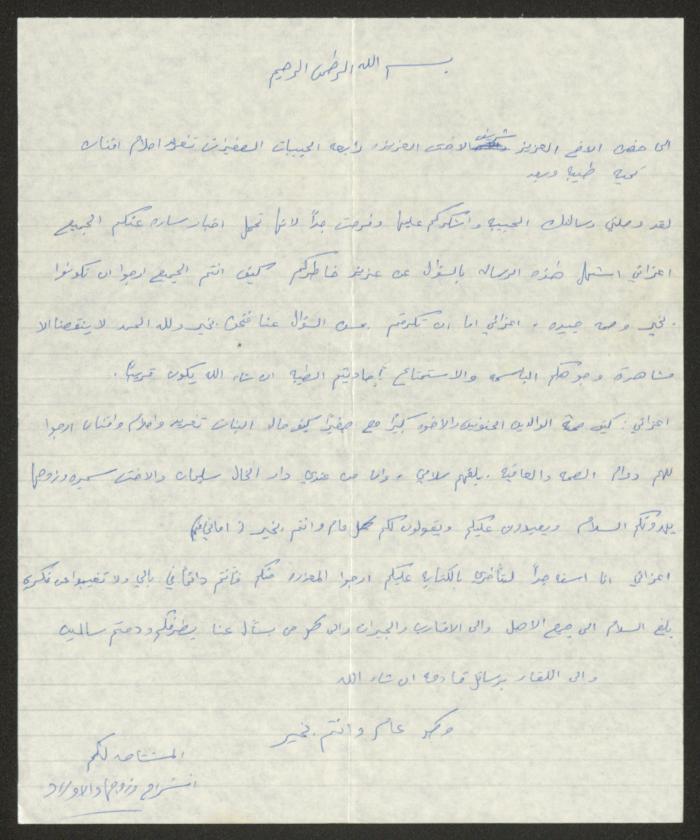 بسم الله الرحمن الرحيم
الى حضرة الاخ العزيز شريف والاخت العزيزة رابعه الحبيبات الصغيرات تغريد احلام افنان
تحية طيبه وبعد
لقد وصلتني رسالتك الحبيبه واشكركم عليها وفرحت جداً لانها تحمل اخبار ساره عنكم الجميع
اعزائي استهل هذه الرساله بالسؤال عن عزيز خاطركم كيف انتم الجميع ارجوا ان تكونوا
بخير وصحه جيده . اعزائي اما ان تكرمتم بالسؤال عنا فنحن بخير ولله الحمد لا ينقصنا الا
مشاهدة وجوهكم الباسمه والاستمتاع باحاديثكم الطيبه ان شاء الله يكون قريباً .
اعزائي : كيف صحة الوالدين الحنونين والاخوة كبيراً مع صغيراً كيف حال البنات تغريد واحلام وافنان ارجوا
لهم دوام الصحه والعافيه . بلغهم سلامي . واما من عندي دار الخال سليمان والاخت سميره وزوجها
يهدونكم السلام ويعيدون عليكم ويقولون لكم كل عام وانتم بخير
اعزائي انا اسفه جداً لتأخري بالكتابه عليكم ارجوا المعذره منكم فأنتم دائماً في بالي ولا تغيبوا عن فكري
بلغ السلام الى جميع الاهل والى الاقارب والجيران والى كل من يسأل عنا بطرفكم ودمتم سالمين
والى اللقاء برسائل قادمه ان شاء الله
وكل عام وانتم بخير
المشتاقه لكم
انشراح وزوجها والاولاد